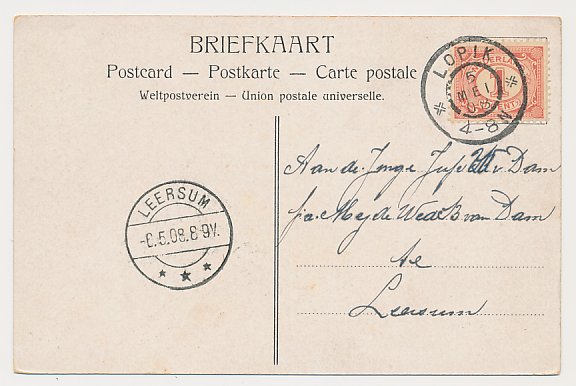 BRIEFKAART
Postcard — Postkarte — Carte postale
Weltpostverein — Union postale universelle.
LOPIK
5
MEI
08
4-8N
NEDERLAND
1
CENT
LEERSUM
-6.5.08.8-9V.
Aan de Jonge Juf v. Dam
p/a. Mej de Wed B van Dam
te
Leersum